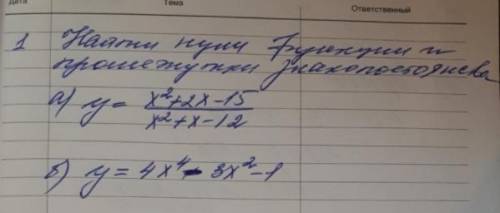 Дата Тема Ответственный
1 Найти нули функции и
промежутки знакопостоянства
а) y = (x²+2x-15)/(x²+x-12)
б) y = 4x⁴ - 3x² - 1